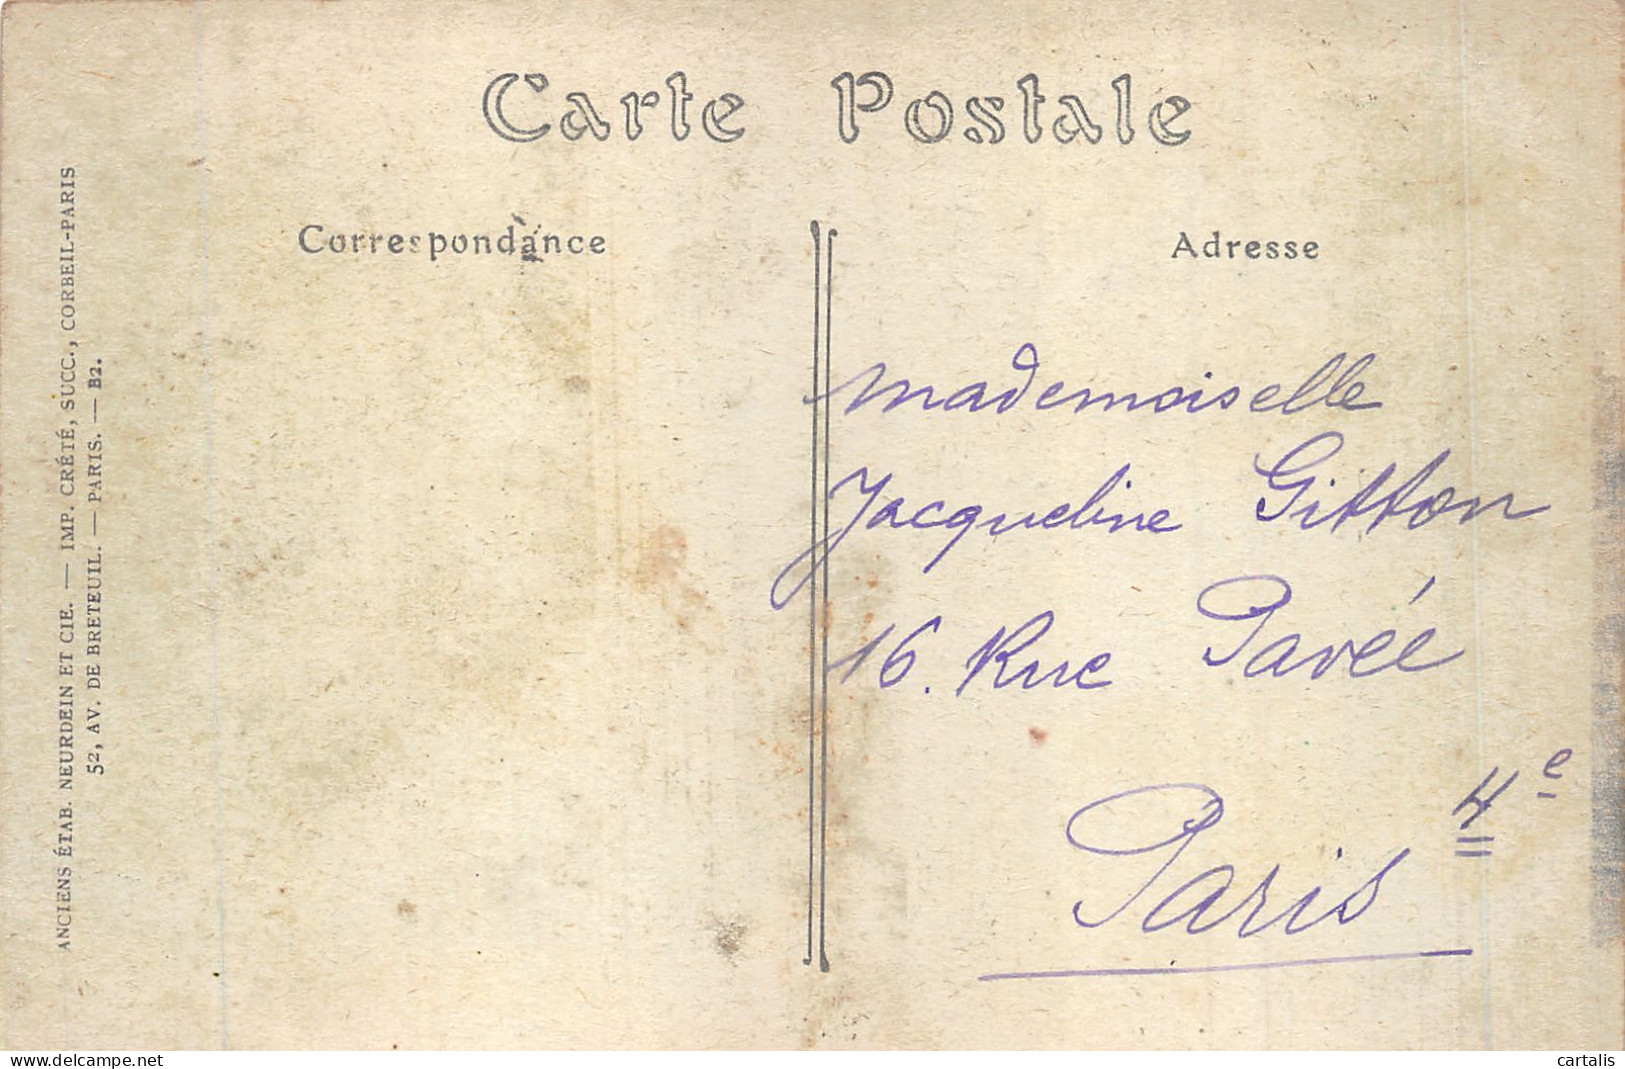 Carte Postale
Correspondance
Adresse
ANCIENS ÉTAB. NEURDEIN ET CIE. — IMP. CRÉTÉ, SUCC., CORBEIL-PARIS
52, AV. DE BRETEUIL. — PARIS. — B2.
Mademoiselle
Jacqueline Gitton
16. Rue Pavée
Paris 4e
www.delcampe.net
cartalis